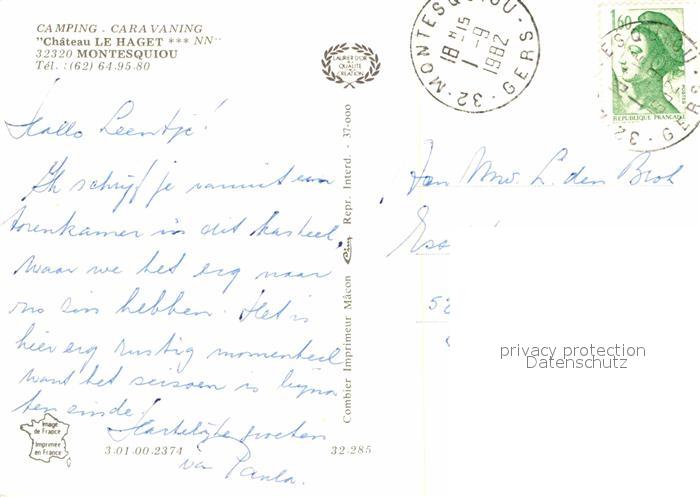 CAMPING - CARAVANING
"Château LE HAGET *** NN"
32320 MONTESQUIOU
Tél. : (62) 64.95.80
Hallo Leentje!
Ik schrijf je vanuit een
torenkamer in dit kasteel,
waar we het erg naar
ons zin hebben. Het is
hier erg rustig momenteel
want het seizoen is bijna
ten einde.
Hartelijke groeten
van Paula.
Image
de France
Imprimée
en France
3.01.00.2374
32-285
LAURIER D'OR
DE LA
QUALITÉ
CRÉATION
Combier Imprimeur Mâcon Cim Repr. Interd. - 37-000
32 - MONTESQUIOU - GERS
18H15
1-9
1982
1,60
REPUBLIQUE FRANÇAISE
Mw. L. den
52
privacy protection
Datenschutz